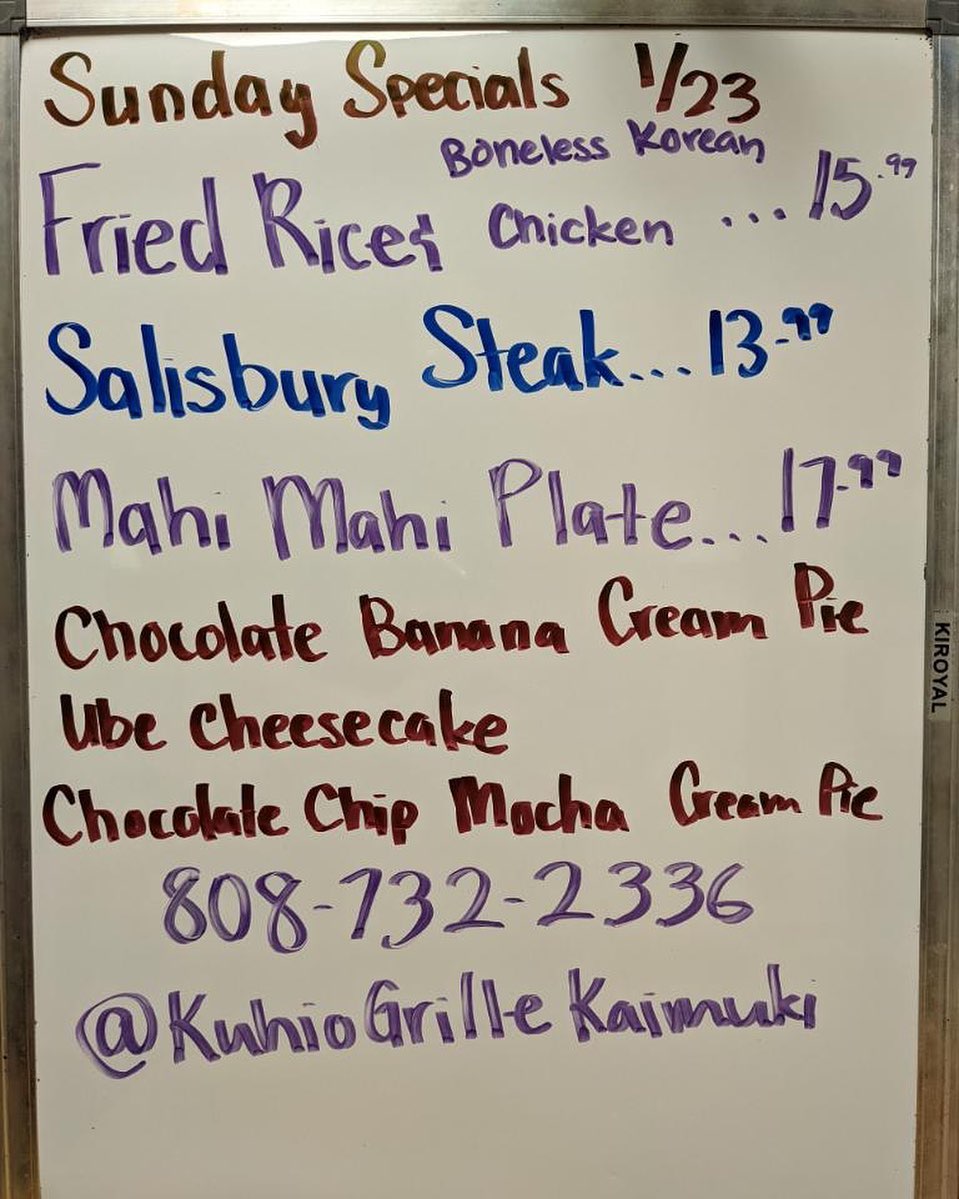 Sunday Specials 1/23
Boneless Korean
Fried Rice & Chicken ... 15.99
Salisbury Steak... 13.99
Mahi Mahi Plate... 17.99
Chocolate Banana Cream Pie
Ube Cheesecake
Chocolate Chip Mocha Cream Pie
808-732-2336
@KuhioGrille Kaimuki
KIROYAL